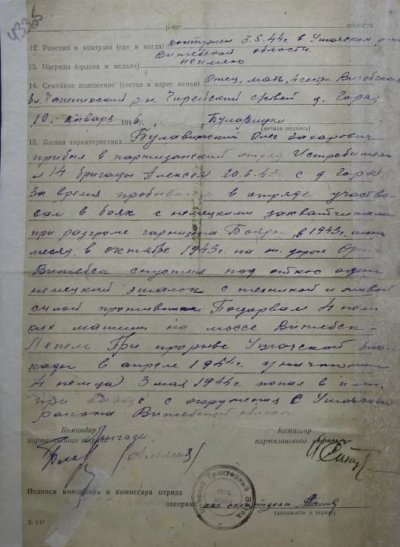 4335
р-ну области
12. Ранения и контузии (где и когда) контужен 3.5.44г. в Ушачском р-не
Витебской области
13. Награды (ордена и медали) не имею
14. Семейное положение (состав и адрес семьи) Отец, мать, 4 сестр. Витебская
обл. Чашникский р-н, сельсовет д. Гора
10 - январь 194 г. Булавицки
(личная подпись)
15. Боевая характеристика Булавицкий Олег Захарович
прибыл в партизанский отряд Истребитель
14 бригады Алексея 20.6.43г. с д. Гора
За время пребывания в отряде участво-
вал в боях с немецкими захватчиками
при разгроме гарнизона Бояры, в 1943г.
месяц в октябре 1943г. на ж. дороге
Витебск спустил под откос один
немецкий эшалон с техникой и живой
силой противника. Подорвал 4 немец-
ких машин на шоссе Витебск-
Лепель. При прорыве Ушачской бло-
кады в апреле 1944г. уничтожил
4 немца 3 мая 1944г. попал в плен
при выходе с окружения в Ушачском
района Витебской области.
Командир
партизанского бригады
(Алексея)
Комиссар
партизанского
Подписи командира и комиссара отряда
заверяю: нач.
(должность и подпись)